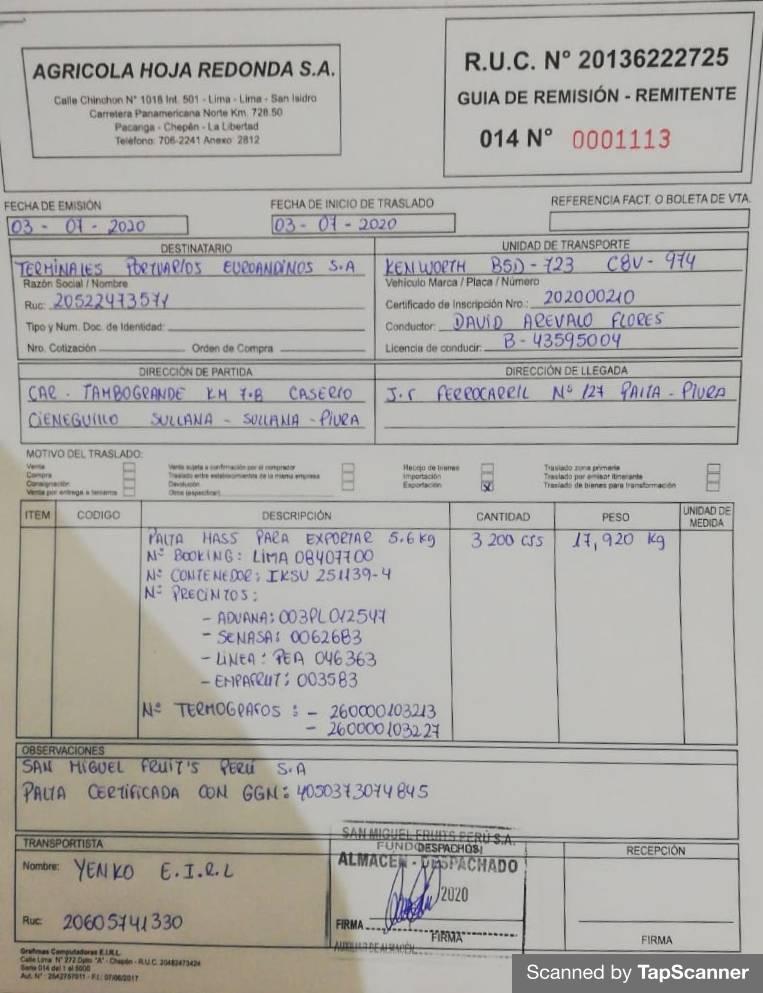 AGRICOLA HOJA REDONDA S.A.
Calle Chinchon N° 1018 Int. 501 - Lima - Lima - San Isidro
Carretera Panamericana Norte Km. 728.50
Pacanga - Chepén - La Libertad
Teléfono: 706-2241 Anexo: 2812
R.U.C. N° 20136222725
GUIA DE REMISIÓN - REMITENTE
014 N° 0001113
FECHA DE EMISIÓN
03 - 07 - 2020
FECHA DE INICIO DE TRASLADO
03 - 07 - 2020
REFERENCIA FACT. O BOLETA DE VTA.
DESTINATARIO
TERMINALES PORTUARIOS EUROANDINOS S.A
Razón Social / Nombre
Ruc: 20522473571
Tipo y Num. Doc. de Identidad:
Nro. Cotización Orden de Compra
UNIDAD DE TRANSPORTE
KENWORTH B5D-723 C8V-974
Vehículo Marca / Placa / Número
Certificado de Inscripción Nro.: 202000210
Conductor: DAVID AREVALO FLORES
Licencia de conducir: B-43595004
DIRECCIÓN DE PARTIDA
CAR. TAMBOGRANDE KM 7.8 CASERIO
CIENEGUILLO SULLANA - SULLANA - PIURA
DIRECCIÓN DE LLEGADA
J.r FERROCARRIL N° 127 PAITA - PIURA
MOTIVO DEL TRASLADO:
Venta
Compra
Consignación
Venta por entrega a terceros
Venta sujeta a confirmación por el comprador
Traslado entre establecimientos de la misma empresa
Devolución
Otros (especificar)
Recojo de bienes
Importación
Exportación X
Traslado zona primaria
Traslado por emisor itinerante
Traslado de bienes para transformación
ITEM CODIGO DESCRIPCIÓN CANTIDAD PESO UNIDAD DE MEDIDA
PALTA HASS PARA EXPORTAR 5.6 kg 3 200 CJS 17,920 kg
N° BOOKING: LIMA 08407700
N° CONTENEDOR: IKSU 251139-4
N° PRECINTOS:
- ADUANA: 003PL012547
- SENASA: 0062683
- LINEA: PEA 046363
- EMPAFRUT: 003583
N° TERMOGRAFOS: - 260000103213
- 260000103227
OBSERVACIONES
SAN MIGUEL FRUIT'S PERÚ S.A
PALTA CERTIFICADA CON GGN: 4050373074845
TRANSPORTISTA
Nombre: YENKO E.I.R.L
Ruc: 20605741330
SAN MIGUEL FRUITS PERU S.A.
FUNDO
DESPACHOS:
ALMACEN - DESPACHADO
2020
FIRMA
FIRMA
AUXILIAR DE ALMACÉN
RECEPCIÓN
FIRMA
Grafimas Computadoras E.I.R.L.
Calle Lima N° 272 Dpto. "A" - Chepén - R.U.C. 20482473424
Serie 014 del 1 al 5000
Scanned by TapScanner